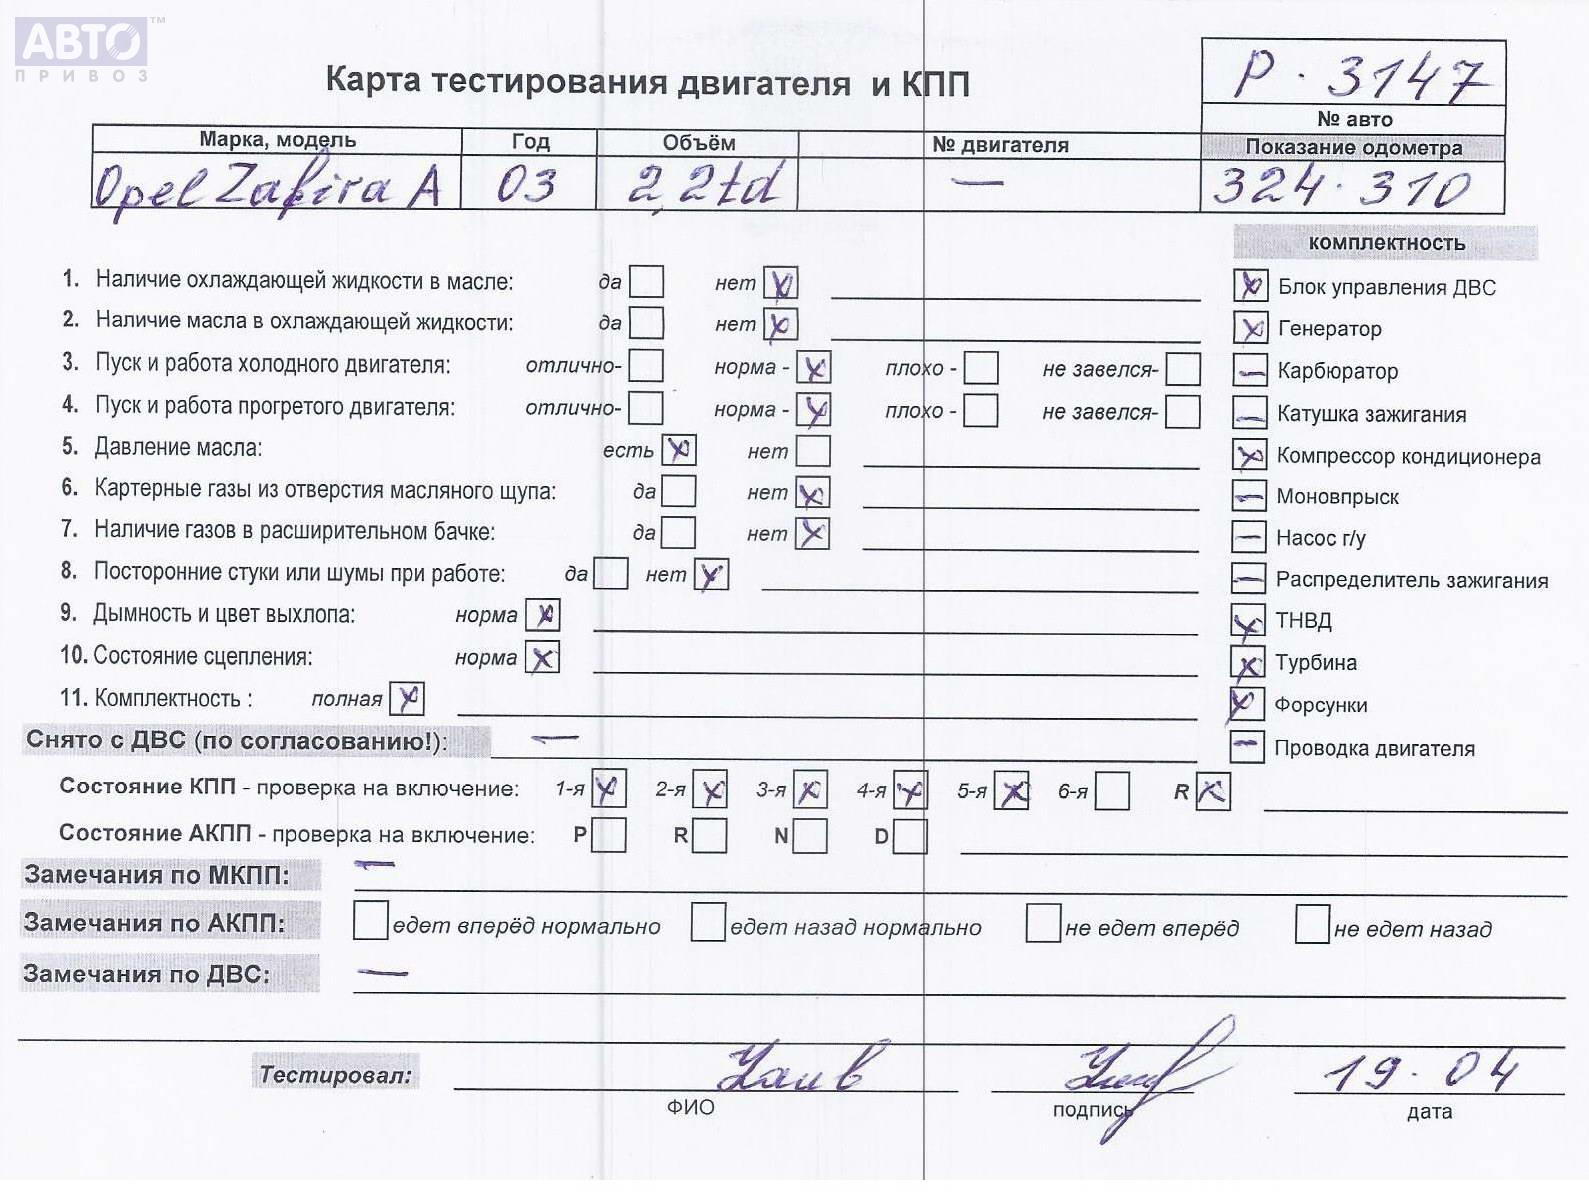 АВТО ™
ПРИВОЗ
Карта тестирования двигателя и КПП
Р · 3147
№ авто
Марка, модель Год Объём № двигателя Показание одометра
Opel Zafira A 03 2,2td — 324 · 310
комплектность
1. Наличие охлаждающей жидкости в масле: да нет Блок управления ДВС
2. Наличие масла в охлаждающей жидкости: да нет Генератор
3. Пуск и работа холодного двигателя: отлично- норма - плохо - не завелся- Карбюратор
4. Пуск и работа прогретого двигателя: отлично- норма - плохо - не завелся- Катушка зажигания
5. Давление масла: есть нет Компрессор кондиционера
6. Картерные газы из отверстия масляного щупа: да нет Моновпрыск
7. Наличие газов в расширительном бачке: да нет Насос г/у
8. Посторонние стуки или шумы при работе: да нет Распределитель зажигания
9. Дымность и цвет выхлопа: норма ТНВД
10. Состояние сцепления: норма Турбина
11. Комплектность : полная Форсунки
Снято с ДВС (по согласованию!): — Проводка двигателя
Состояние КПП - проверка на включение: 1-я 2-я 3-я 4-я 5-я 6-я R
Состояние АКПП - проверка на включение: P R N D
Замечания по МКПП: —
Замечания по АКПП: едет вперёд нормально едет назад нормально не едет вперёд не едет назад
Замечания по ДВС: —
Тестировал: 19 · 04
ФИО подпись дата